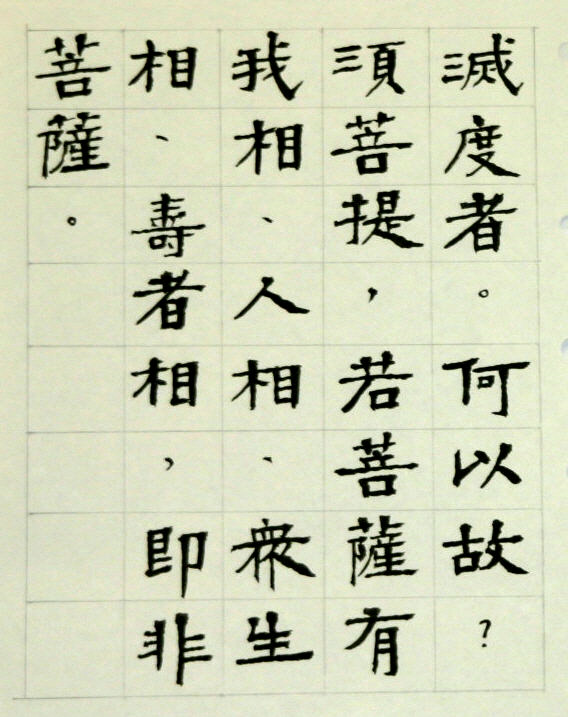 滅度者。何以故?
須菩提，若菩薩有
我相、人相、衆生
相、壽者相，即非
菩薩。